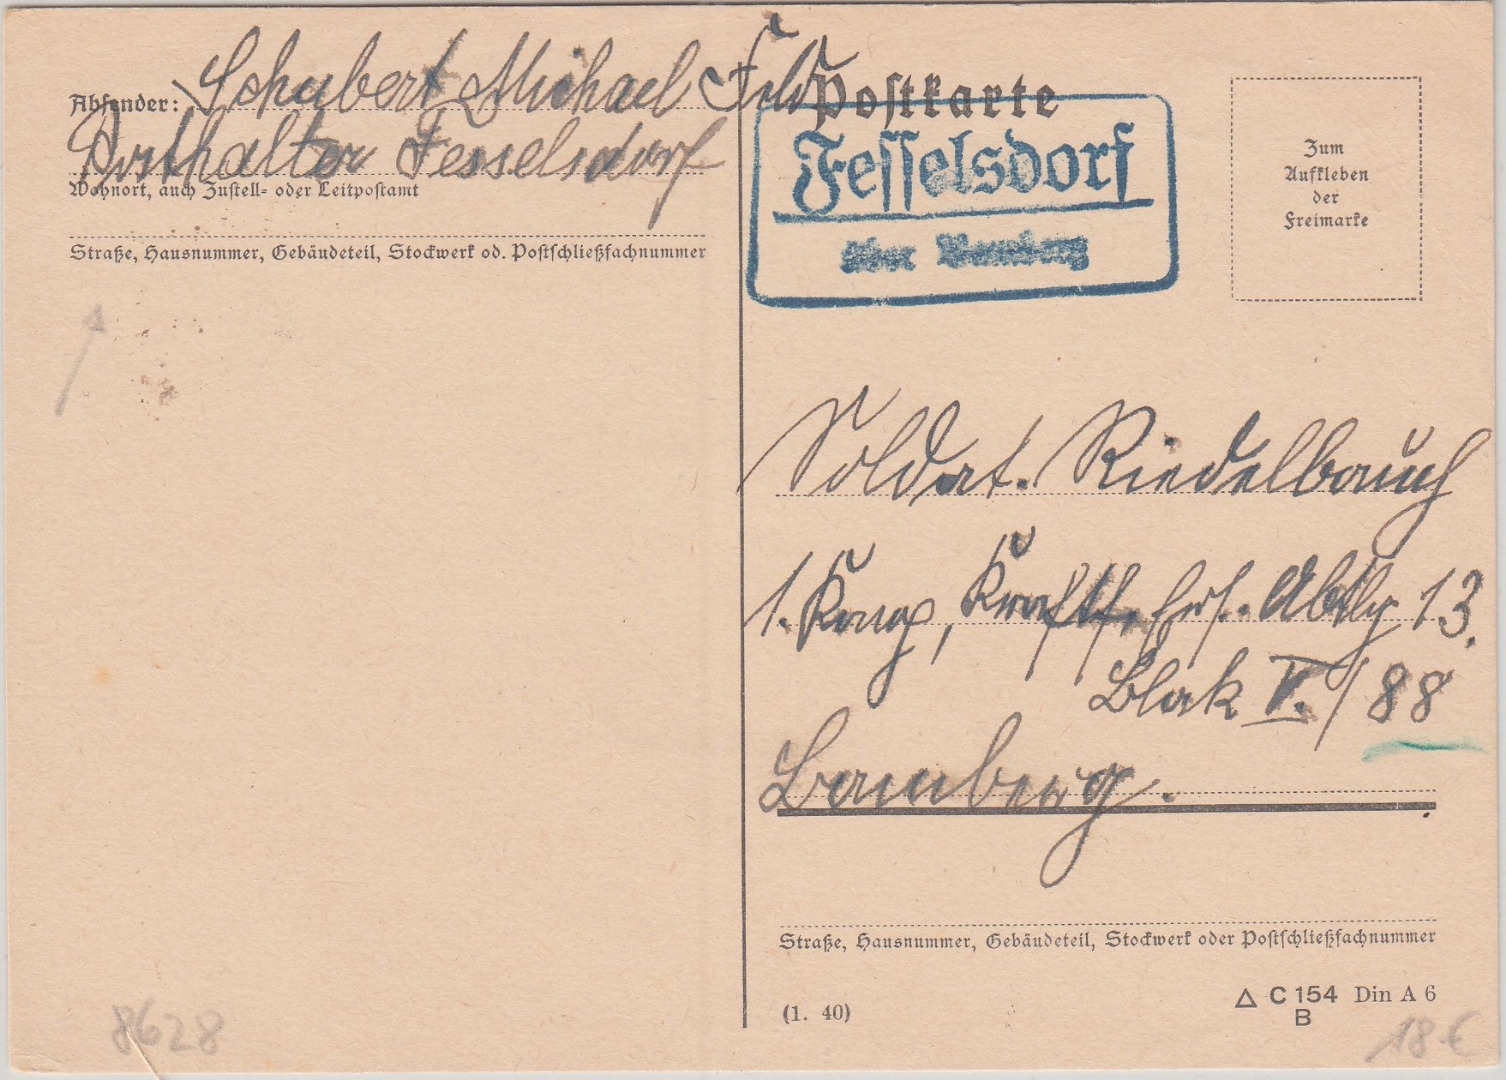 Absender: Schubert Michael Feld
Posthalter Fesselsdorf
Wohnort, auch Zustell- oder Leitpostamt
Straße, Hausnummer, Gebäudeteil, Stockwerk od. Postschließfachnummer
Postkarte
Fesselsdorf
über Bamberg
Zum
Aufkleben
der
Freimarke
Soldat. Riedelbauch
1. Komp, Kraftf. Ers. Abtlg 13.
Blok V. / 88
Bamberg.
Straße, Hausnummer, Gebäudeteil, Stockwerk oder Postschließfachnummer
(1. 40)
△ C 154 Din A 6
B
8628
18 €